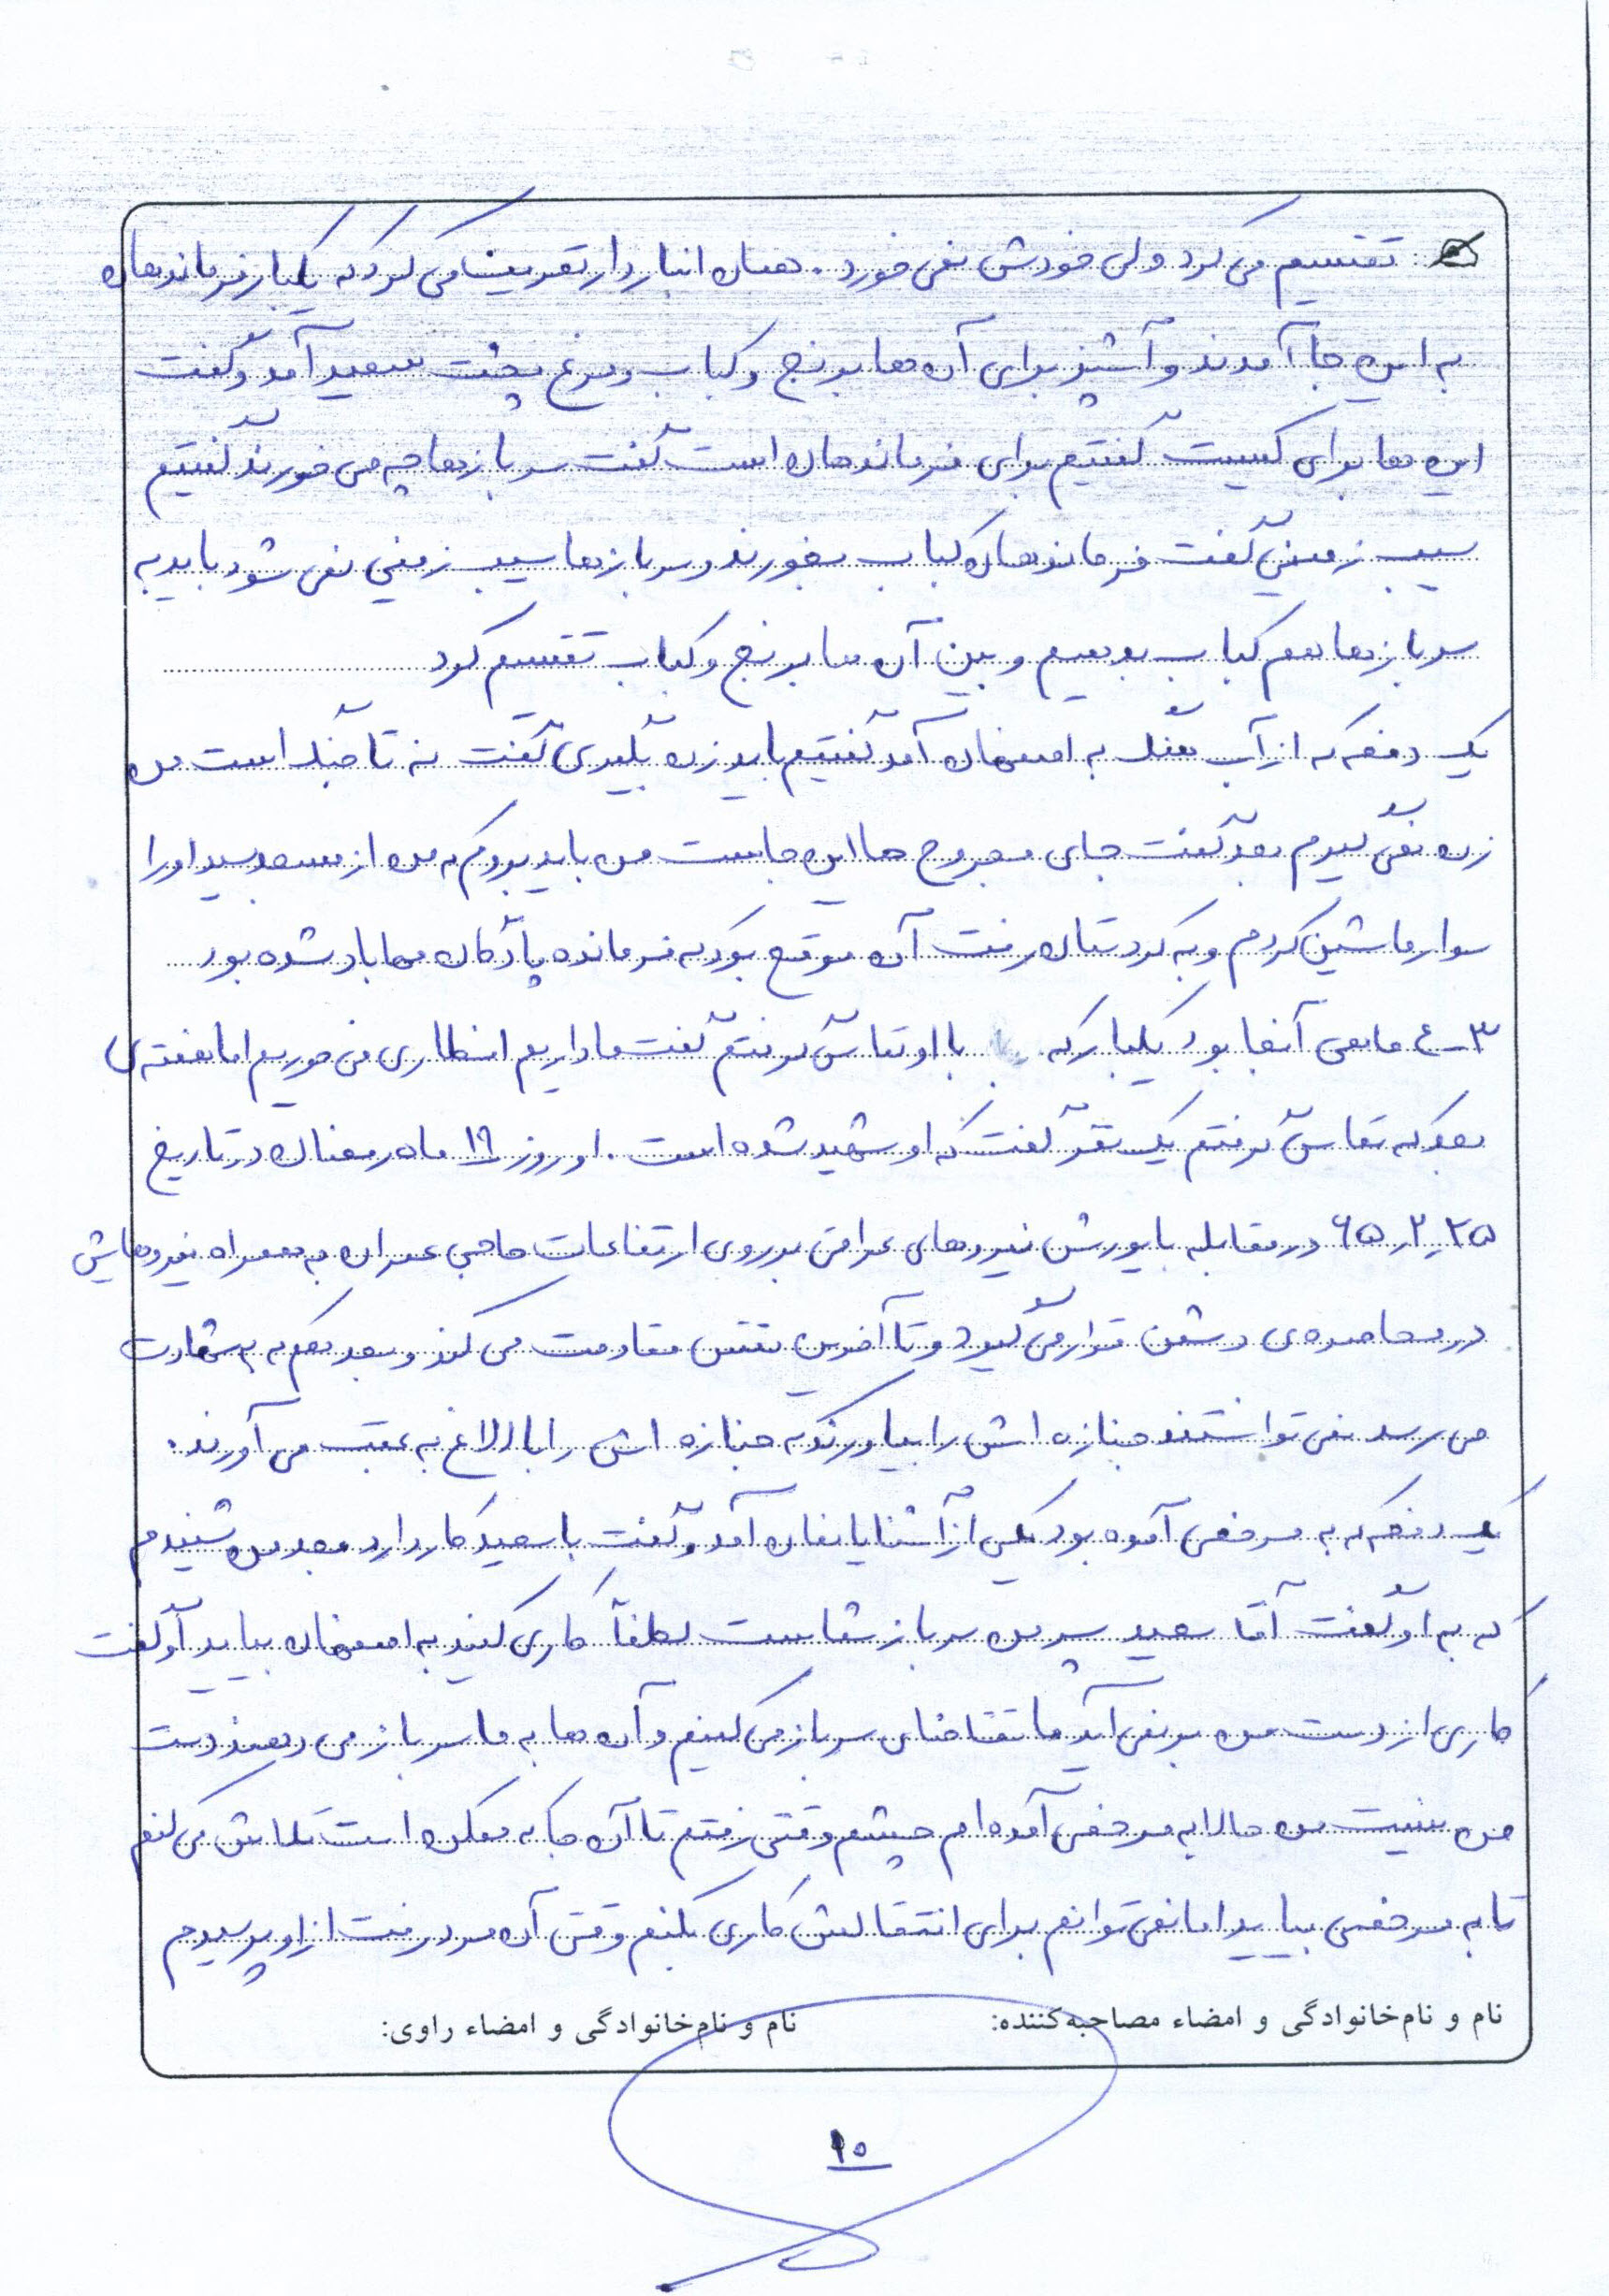 تقسیم می کرد ولی خودش نمی خورد. همان انبار دار تعریف می کرد که یکبار فرماندهان
به این جا آمدند و آشپز برای آن ها برنج و کباب و مرغ پخت سعید آمد و گفت
این ها برای کیست گفتیم برای فرماندهان است گفت سربازها چه می خورند گفتیم
سیب زمینی گفت فرماندهان کباب بخورند و سربازها سیب زمینی نمی شود باید به
سربازها هم کباب بدهیم و بین آن ها برنج و کباب تقسیم کرد
یک دفعه که از آب به اصفهان آمد گفتیم باید زن بگیری گفت نه تا جنگ است من
زن نمی گیرم بعد گفت جای مجروح ها این جاست من باید بروم که من از مسجد سید او را
سوار ماشین کردم و به کردستان رفت آن موقع بود که فرمانده پادگان مهاباد شده بود
۳-٤ ماهی آنجا بود یکبار که با او تماس گرفتم گفت ما داریم افطاری می خوریم اما هفته ی
بعد که تماس گرفتم یک نفر گفت که او شهید شده است. او روز ۱۹ ماه رمضان در تاریخ
۶۵٫۲٫۲۵ در مقابله با یورش نیروهای عراقی بر روی ارتفاعات حاجی عمران به همراه نیروهایش
در محاصره ی دشمن قرار می گیرد و تا آخرین نفس مقاومت می کند و بعد هم که به شهادت
می رسد نمی توانستند جنازه اش را بیاورند که جنازه اش را با الاغ به عقب می آورند.
یک دفعه که به مرخصی آمده بود یکی از آشنایانمان آمد و گفت با سعید کار دارد بعد من شنیدم
که به او گفت آقا سعید پسر من سرباز شماست لطفاً کاری کنید به اصفهان بیاید او گفت
کاری از دست من بر نمی آید ما تقاضای سرباز می کنیم و آن ها به ما سرباز می دهند دست
من نیست من حالا به مرخصی آمده ام چشم وقتی رفتم تا آن جا که ممکن است تلاش می کنم
تا به مرخصی بیاید اما نمی توانم برای انتقالش کاری بکنم وقتی آن مرد رفت از او پرسیدم
نام و نام‌خانوادگی و امضاء مصاحبه‌کننده: نام و نام‌خانوادگی و امضاء راوی:
۱۵